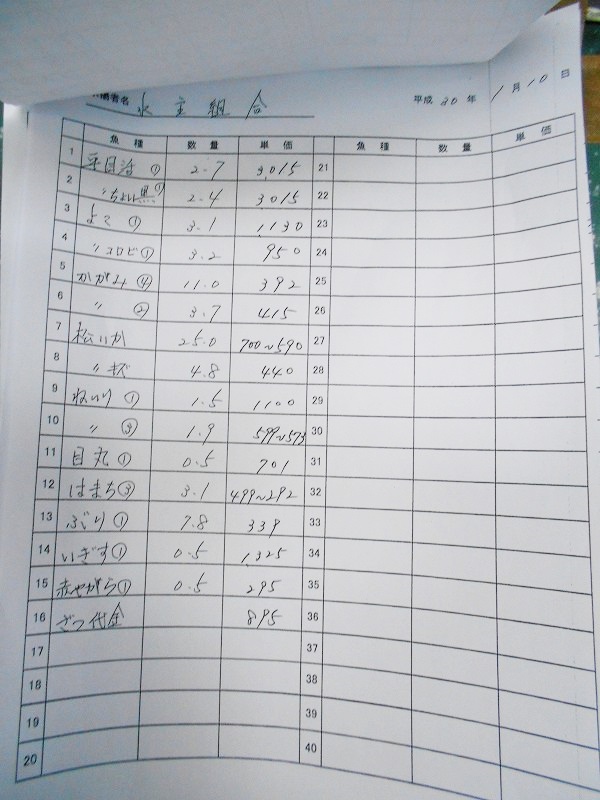 場者名 水主組合 平成 30 年 1 月 10 日
魚種 数量 単価 魚種 数量 単価
1 平目活 ① 2.7 3,015 21
2 〃ちょい黒① 2.4 3,015 22
3 よこ ① 3.1 1,130 23
4 〃コロビ① 3.2 950 24
5 かがみ ④ 11.0 392 25
6 〃 ② 3.7 415 26
7 松いか 25.0 700~590 27
8 〃キズ 4.8 440 28
9 ねいり ① 1.5 1100 29
10 〃 ③ 1.9 599~573 30
11 目丸 ① 0.5 701 31
12 はまち③ 3.1 499~292 32
13 ぶり① 7.8 339 33
14 いぎす① 0.5 1,325 34
15 赤やがら① 0.5 295 35
16 ざつ代金 895 36
17 37
18 38
19 39
20 40